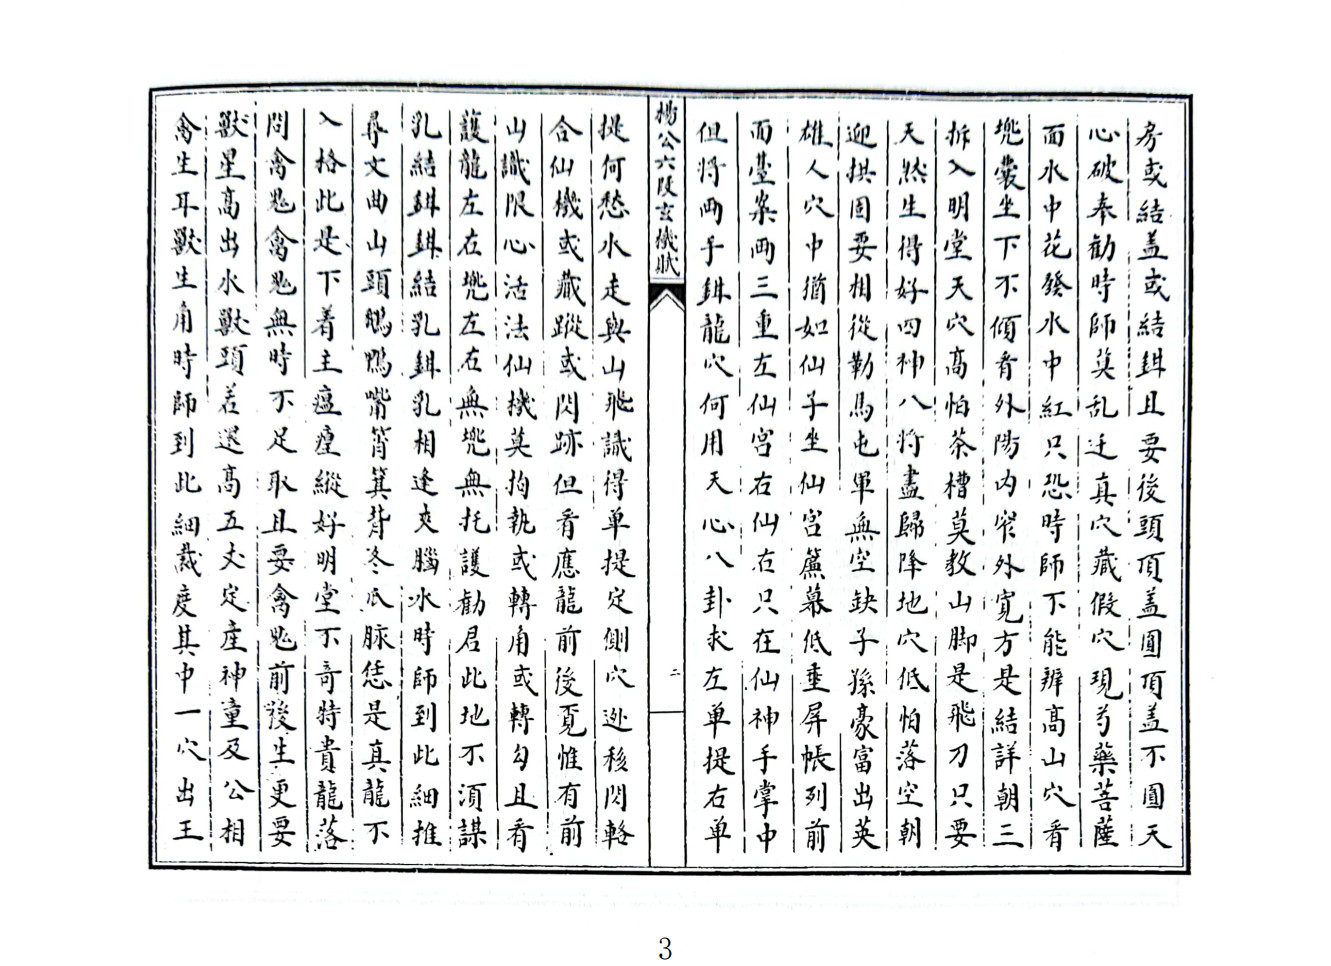 房或結盖或結鉗且要後頭頂盖圓頂盖不圓天
心破奉勸時師莫乱迁真穴藏假穴現芍藥菩薩
面水中花發水中紅只恐時師不能辨高山穴看
兠囊坐下不傾看外陽内窄外寛方是結詳朝三
拆入明堂天穴高怕茶槽莫教山脚是飛刀只要
天然生得好四神八将盡歸降地穴低怕落空朝
迎拱固要相從勒馬屯軍無空缺子孫豪富出英
雄人穴中猶如仙子坐仙宫簾幕低垂屏帳列前
面臺案両三重左仙宫右仙右只在仙神手掌中
但将両手鉗龍穴何用天心八卦求左单提右单
楊公六段玄機賦
二
提何愁水走與山飛識得单提定側穴迯移閃輅
合仙機或藏蹤或閃跡但看應龍前後覔惟有前
山識限心活法仙機莫拘執或轉角或轉勾且看
護龍左右兠左右無兠無托護勸君此地不湏謀
乳結鉗鉗結乳鉗乳相逢夾腦水時師到此細推
尋文曲山頭鵝鴨嘴筲箕背冬瓜脉恁是真龍不
入格此是下着主瘟㾮縱好明堂不奇特貴龍落
問禽鬼禽鬼無時不足取且要禽鬼前後生更要
獸星高出水獸頭若還高五丈定産神童及公相
禽生耳獸生角時師到此細裁度其中一穴出王
3